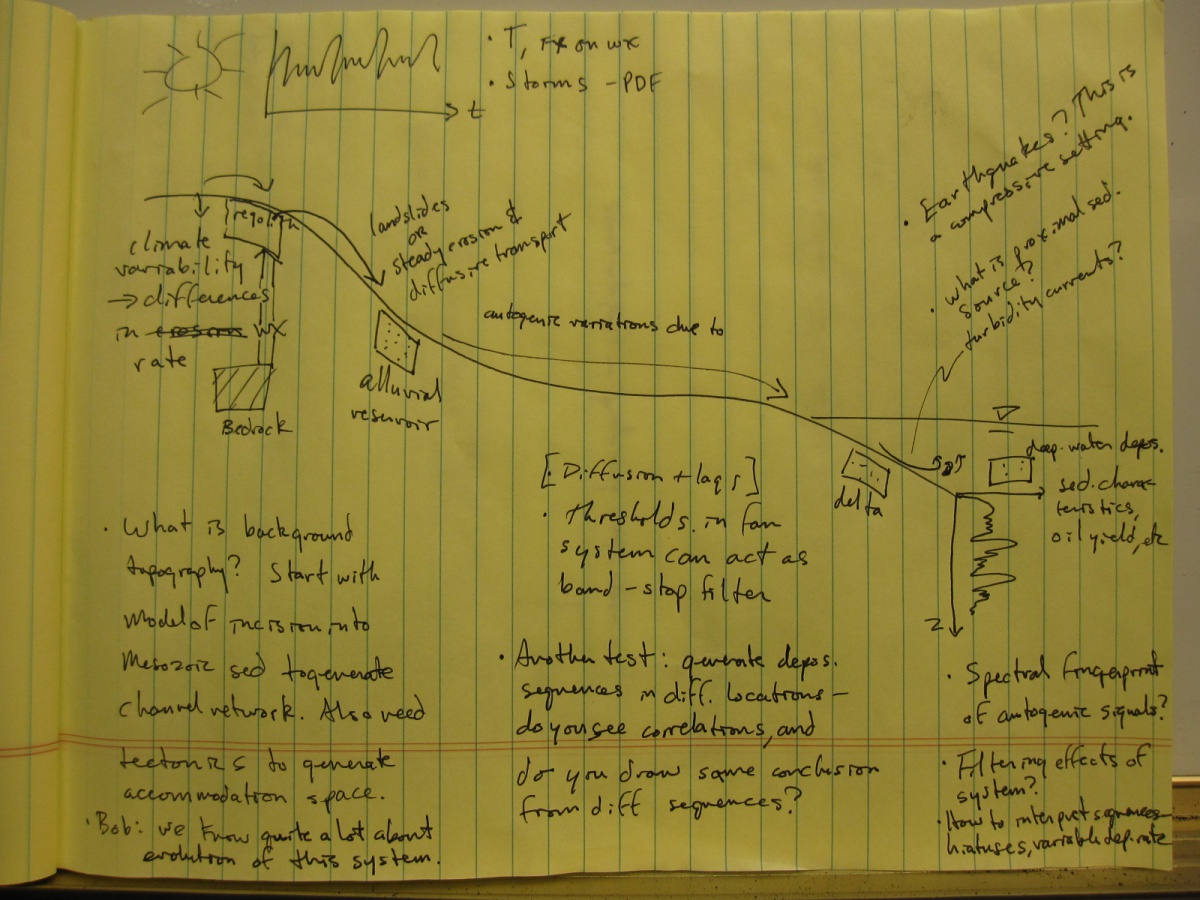 • T, fx on wx
• Storms - PDF
t
• Earthquakes? This is
a compressive setting.
• What is proximal sed.
source?
turbidity currents?
regolith
climate
variability
→ differences
in wx
rate
Bedrock
landslides
or
steady erosion &
diffusive transport
alluvial
reservoir
autogenic variations due to
delta
deep-water depos.
sed. charac-
teristics,
oil yield, etc
z
[Diffusion + lags]
• thresholds in fan
system can act as
band-stop filter
• What is background
topography? Start with
model of incision into
Mesozoic sed to generate
channel network. Also need
tectonics to generate
accommodation space.
• Bob: we know quite a lot about
evolution of this system.
• Another test: generate depos.
sequences in diff. locations -
do you see correlations, and
do you draw same conclusion
from diff sequences?
• Spectral fingerprint
of autogenic signals?
• Filtering effects of
system?
• How to interpret sequences
hiatuses, variable dep. rate